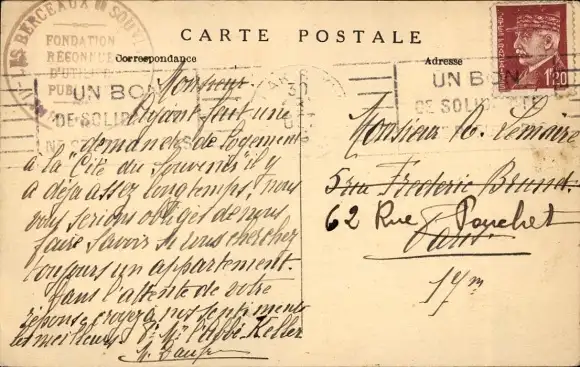 LES BERCEAUX
FONDATION
RECONNUE
D'UTILITÉ
PUB
CARTE POSTALE
Correspondance
Adresse
UN BON
DE SOLID
UN BON
DE SOLID
1F20
Monsieur
Ayant fait une
demande de logement
à la "Cité du Souvenir" il y
a déjà assez longtemps, nous
vous serions obligés de nous
faire savoir si vous cherchez
toujours un appartement.
Dans l'attente de votre
réponse, croyez à nos sentiments
les meilleurs. Pr Mr l'Abbé Keller
Monsieur A. Lemaire
5 rue Frédéric Brunet
62 Rue Pouchet
Paris
17m